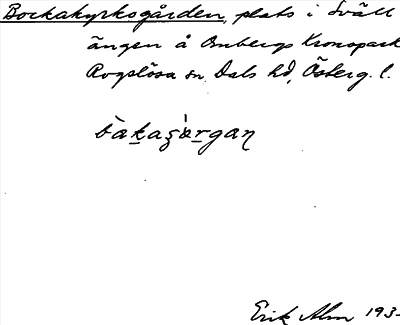 Bockakyrksgården, plats i Sväll
ängen å Ombergs Kronopark
Rogslösa sn. Dals hd, Österg. l.
Erik Alm 193-